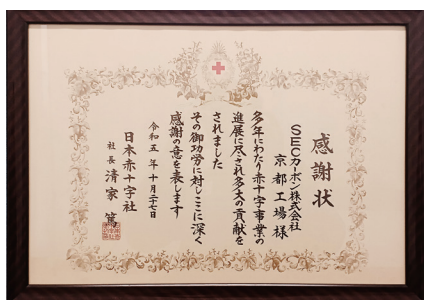 感謝状
SECカーボン株式会社
京都工場様
多年にわたり赤十字事業の
進展に尽され多大の貢献を
されました
その御功労に対しここに深く
感謝の意を表します
令和五年十月二十七日
日本赤十字社
社長 清家 篤